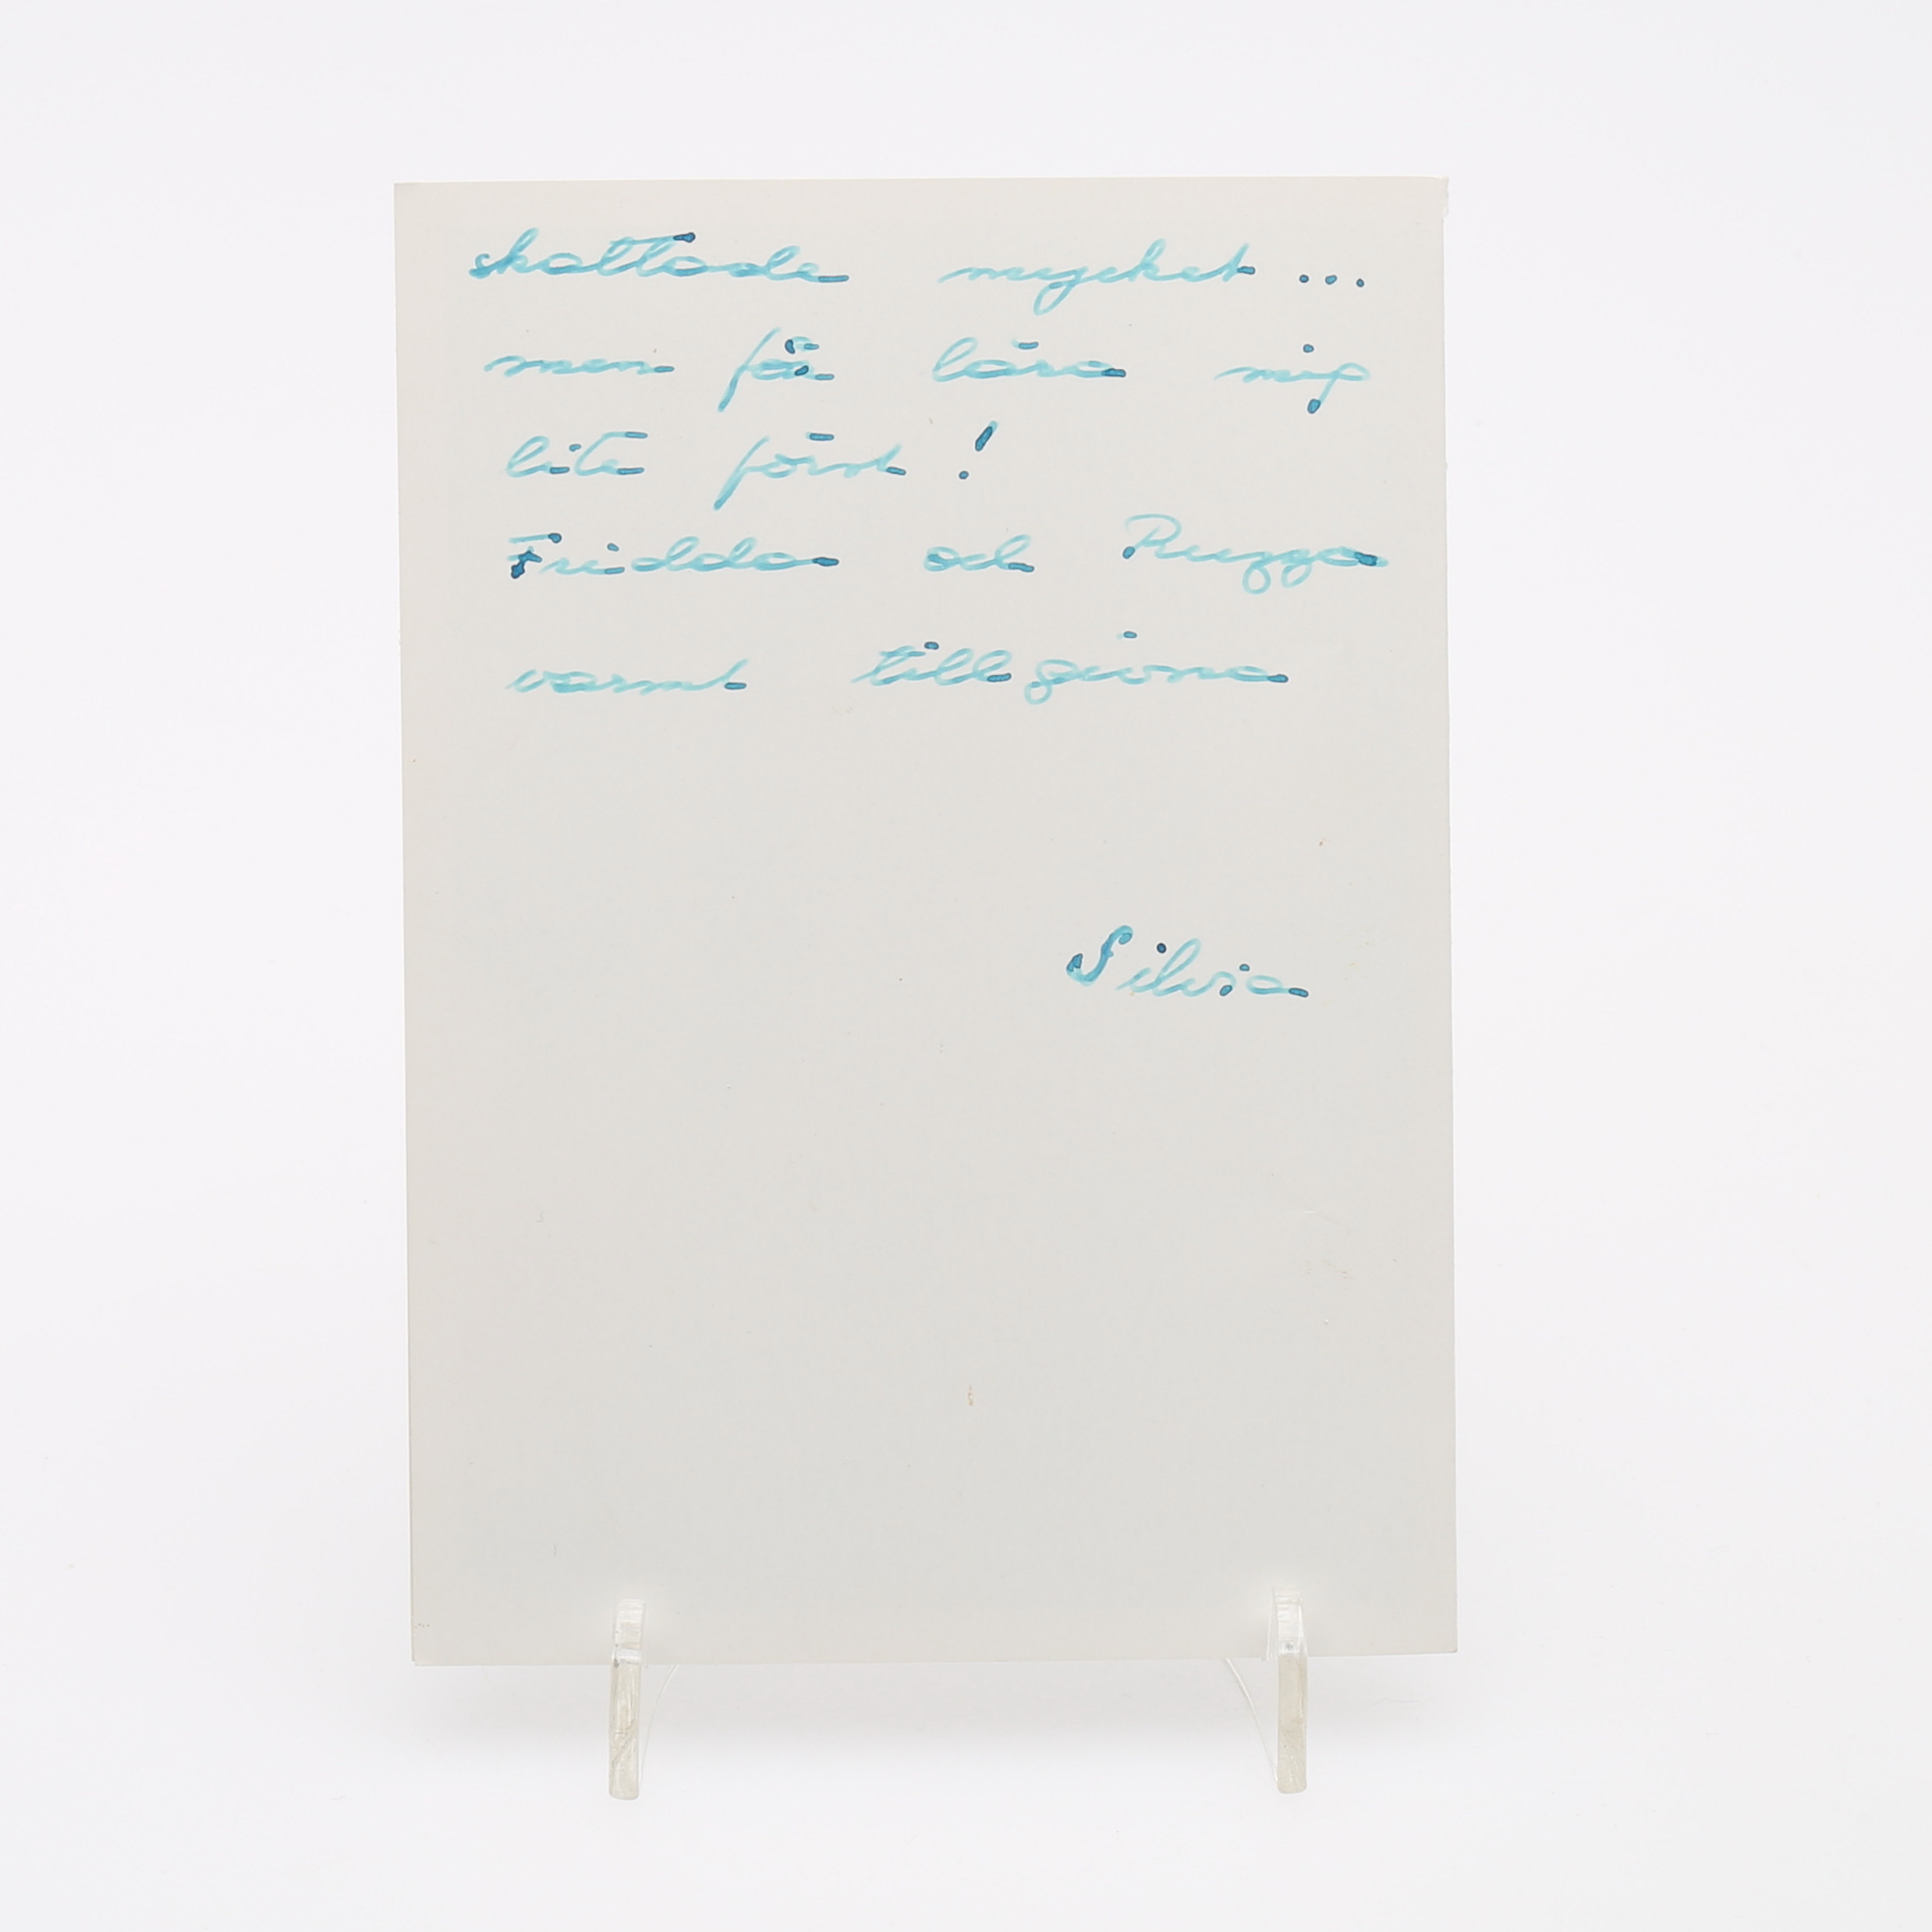 skattade mycket ...
men får lära mig
lite först !
Fridda och Ruzza
varmt tillgivna
Silvia